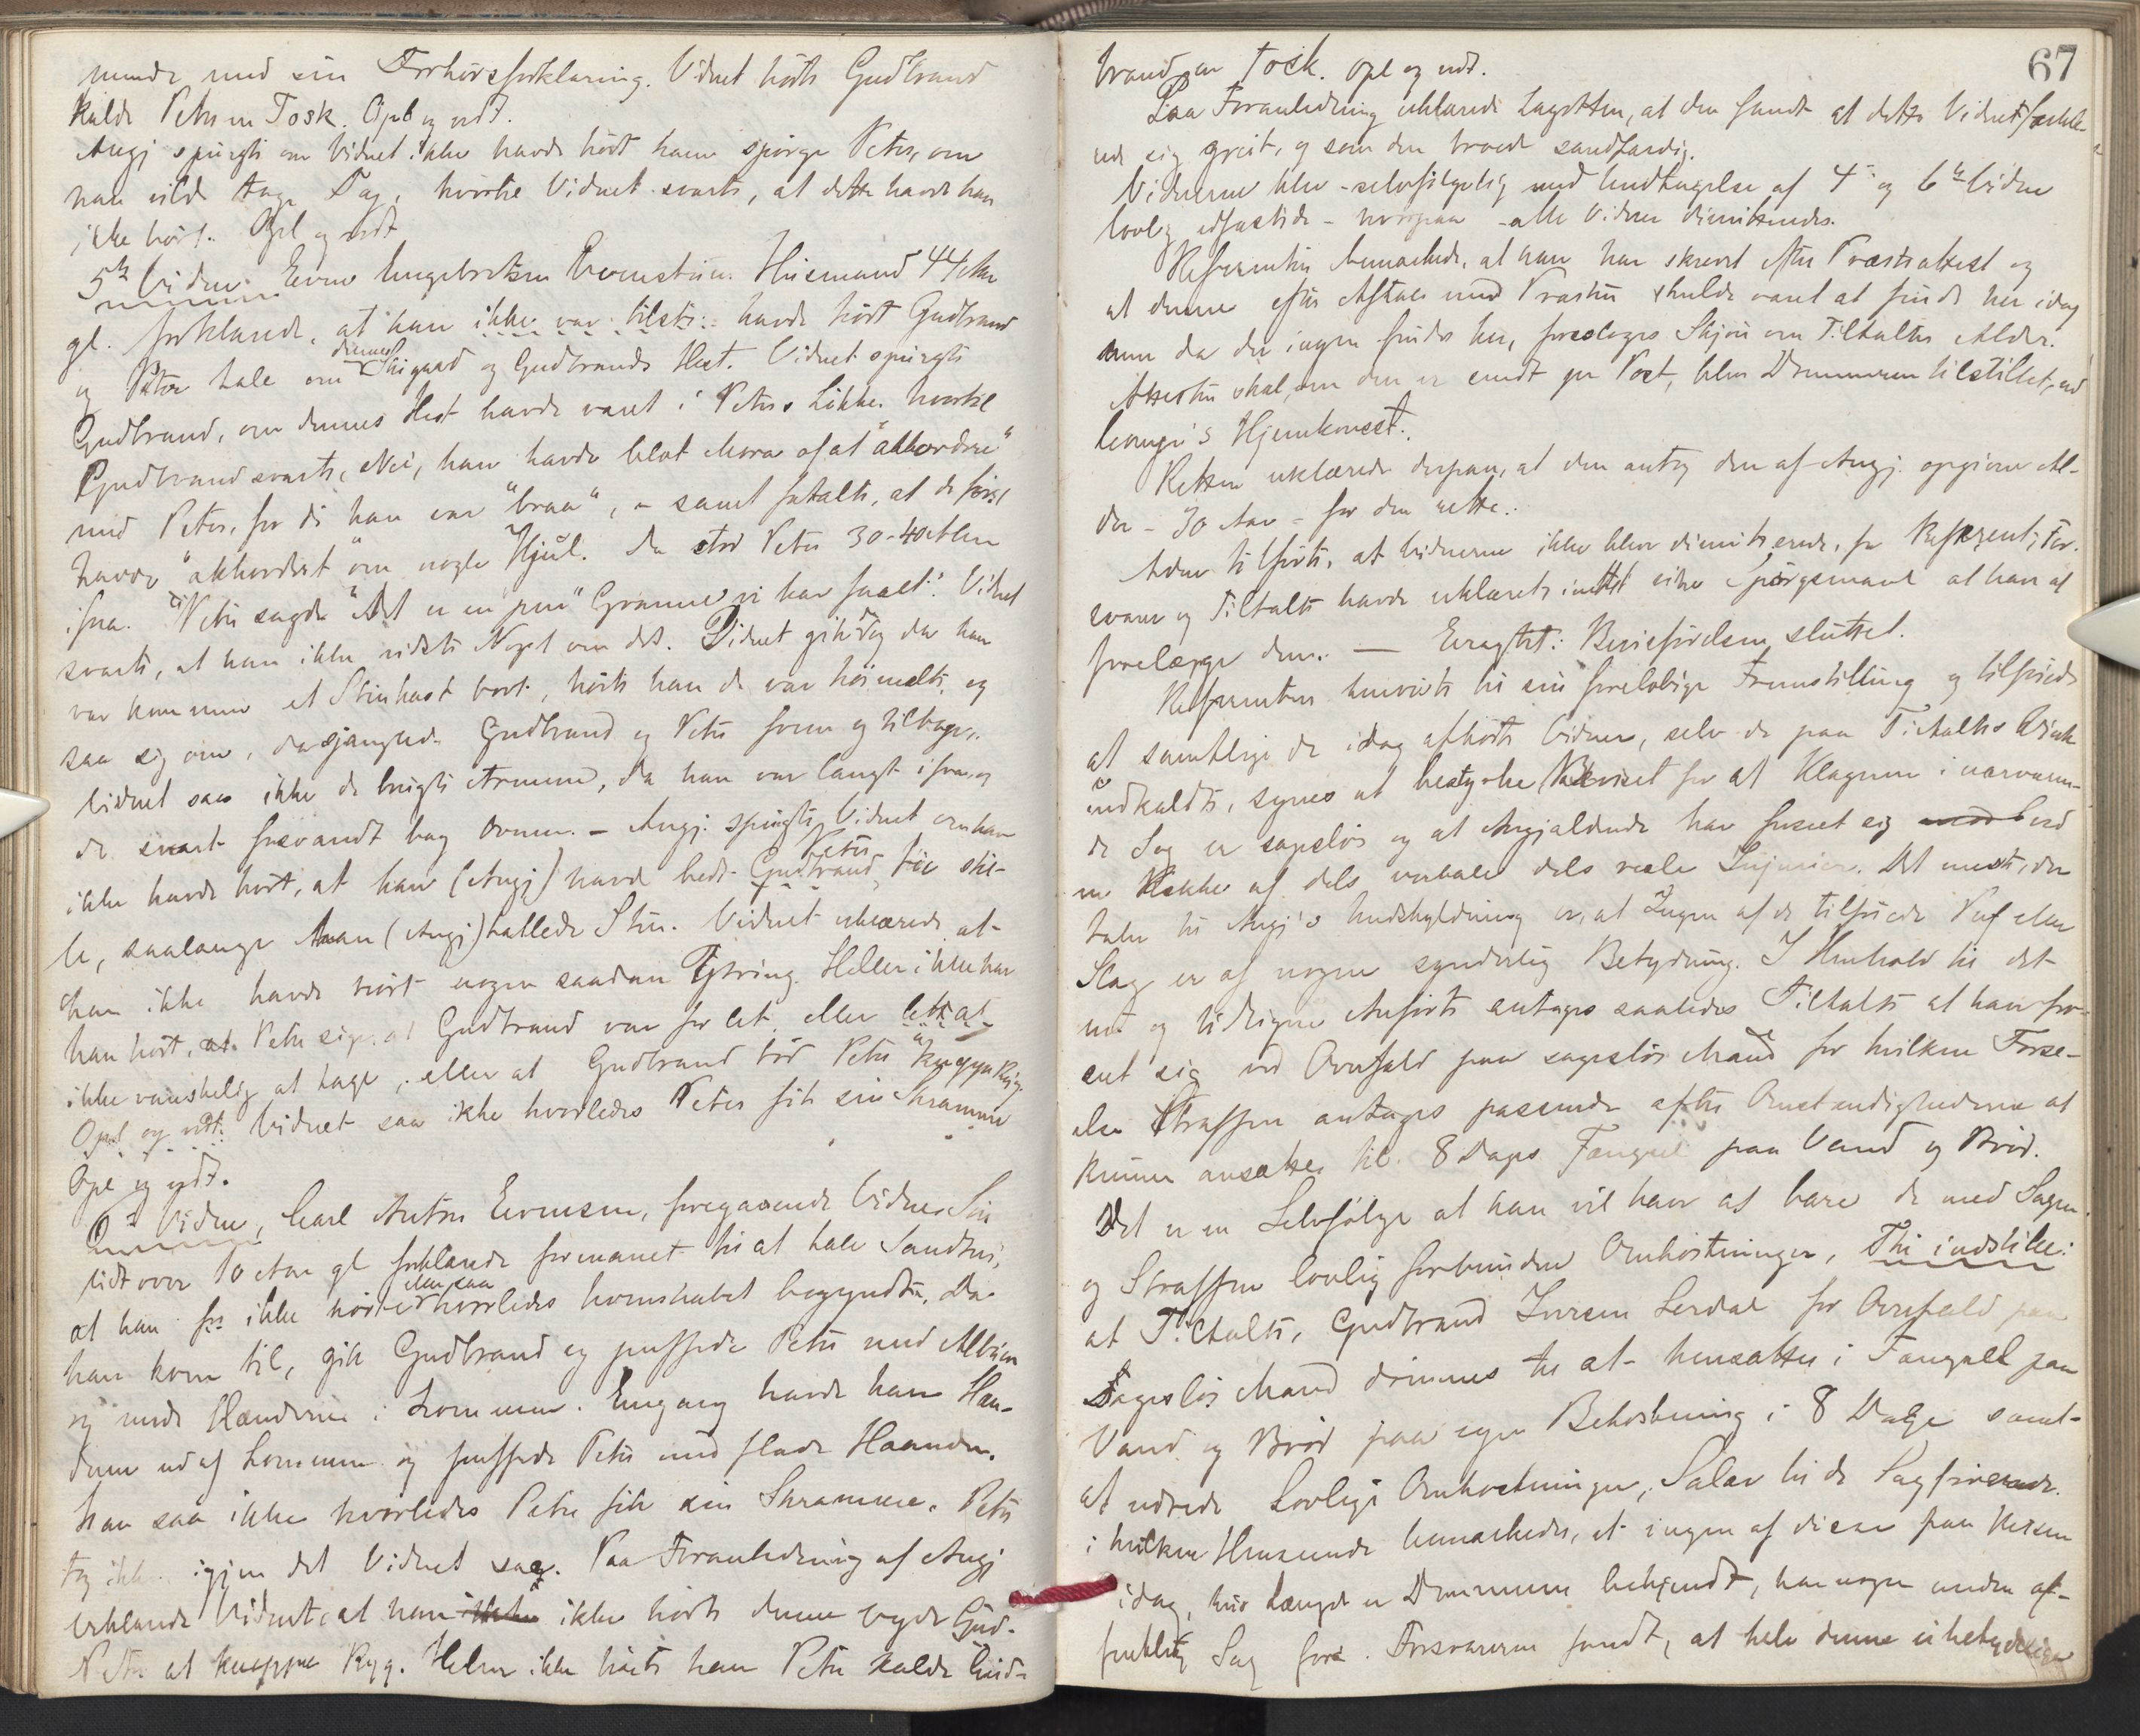 nende med sin Forhørsforklaring. Vidnet hørte Gudbrand
kalde Peter en Tosk. Opl og vedt.
Angj spurgte om Vidnet ikke havde hørt ham spørge Peter, om
han vilde tage Tag, hvortil Vidnet svarte, at dette havde han
ikke hørt. Opl og vedt
5te Vidne: Even Engebretsen Huusmand 44 Aar
gl. forklarede, at han ikke var tilste: havde hørt Gudbrand
og Peter tale om dennes Skigard og Gudbrands Hest. Vidnet spurgte
Gudbrand, om dennes Hest havde været i Peters Løkke. hvortil
Gudbrand svarte, Nei, han havde blot Mora af at "akkordere"
med Peter, for di han var "braa", - samt fortalte, at de først
havde "akkordert" om nogle Hjul. Da stod Peter 30-40 Alen
ifra. Peter sagde "Det er en pen" Granne vi har faaet". Vidnet
svarte, at han ikke vidste Noget om det. Vidnet gik dog da han
var kommen et Stenkast bort, hørte han de var høimælte, og
saa sig om, da sjangled Gudbrand og Peter frem og tilbage.
Vidnet saa ikke de brugte Armene, da han var langt ifra, og
de snart forsvandt bag Ovnen. - Angj. spurgte Vidnet om han
ikke havde hørt, at han (Angj) havde bedt Gudbrand Peter tie stil-
le, saalænge han (Angj) kallede Sten. Vidnet erklærede at
han ikke havde hørt nogen saadan Ytring. Heller ikke har
han hørt, at Peter sige at Gudbrand var for let. eller let at
ikke vanskelig at tage, eller at Gudbrand bød Peter "knæppe Ryg
Opl og vedt: Vidnet saa ikke hvorledes Peter fik sin Skramme
Opl og vedt.
6te Vidne, Carl Anton Evensen, foregaaende Vidnes Søn
lidt over 10 Aar gl forklarede formanet til at tale Sandhed,
at han ikke hørte eller saa hvorledes Klammeriet begyndte. Da
han kom til, gik Gudbrand og puffede Peter med Albuen
og med Hænderne i Lommen. Engang havde han Haan-
den ud af Lommen og puffede Peter med flade Haanden.
Han saa ikke hvorledes Peter fik sin Skramme. Peter
tog ikke igjen det Vidnet saa. Paa Foranledning af Angj
erklærede Vidnet, at han ikke hørte denne byde Gud-
Peter at knæppe Ryg. Heller ikke hørte han Peter kalde Gud-
67
brand en Tosk. Opl og vedt.
Paa Foranledning erklærede Lagretten, at den fandt at dette Vidnet forkla-
red sig greit, og som den troede sandfærdig.
Vidnerne blev - selvfølgelig med Undtagelse af 4de og 6te Vidne
lovlig edfæstede - hvorpaa alle Vidner dimitteredes.
Referenten bemærkede, at han har skrevet efter Præsteattest og
at denne efter Aftale med Præsten skulde været at finde her idag
men da der ingen findes her, foreslages Skjøn om Tiltaltes Alder.
Attesten skal, om den er sendt pr Post, blive Dommeren tilstillet, ved
Hjemkomst.
Retten erklærede derpaa, at den antog den af Angj. opgivne Al-
der - 30 Aar - for den rette.
Aden tilførtes, at Vidnerne ikke blev dimitterede, før Referent, For-
svarer og Tiltalte havde erklæret intet videre Spørgsmaal at have at
forelægge dem. — Eragtet: Bevisførelsen sluttet.
Referenten henviste til sin foreløbige Fremstilling og tilføiede
at samtlige de idag afhørte Vidner, selv de paa Tiltaltes Vink
indkaldte, synes at bestyrke Beviset for at Klageren i nærværen-
de Sag er sagesløs og at Angjældende har forseet sig ved
en Række af dels verbale dels reale Injurier. Det meste, der
taler til Angj's Undskyldning er, at Ingen af de tilføiede Puf eller
Slag er af nogen synderlig Betydning. I Henhold til det
nu og tidligere Anførte antages saaledes Tiltalte at have for-
seet sig ved Overfald paa sagesløs Mand for hvilken Forse-
else Straffen antages passende efter Omstændighederne at
kunne ansættes til 8 Dages Fængsel paa Vand og Brød.
Det er en Selvfølge at han vil have at bære de med Sagen
og Straffen lovlig forbundne Omkostninger, Thi indstilles:
at Tiltalte, Gudbrand Iversen Lerdal for Overfald paa
Sagesløs Mand dømmes til at hensættes i Fængsel paa
Vand og Brød paa egen Bekostning i 8 Dage samt
at udrede Lovlige Omkostninger, Salær til de Sagførende.
i hvilken Henseende bemærkedes, at ingen af disse paa Reisen
idag, hvis Længde er Dommeren bekjendt, har nogen anden af-
fentlig Sag fore. Forsvareren fandt, at hele denne ubetydelige